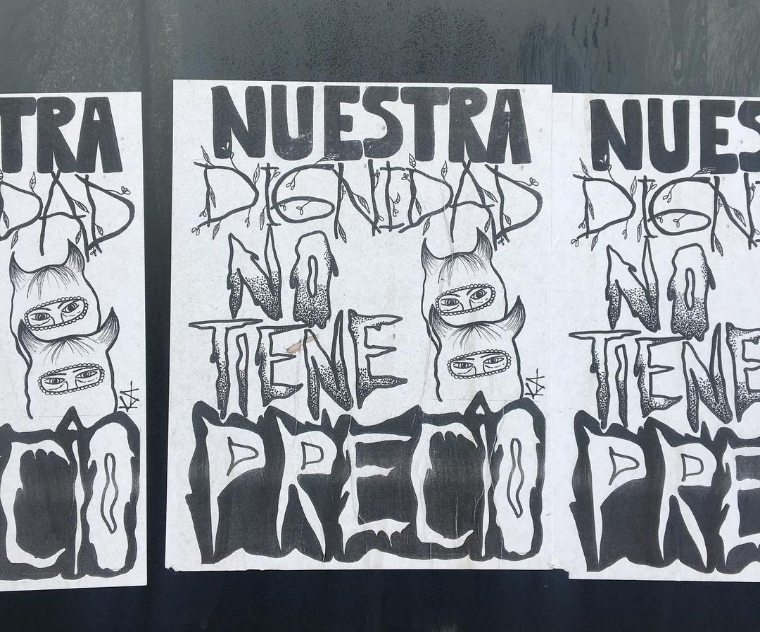 TRA
DAD
CIO
KA
NUESTRA
DIGNIDAD
NO
TIENE
PRECIO
KA
NUES
DIGNI
NO
TIENE
PRE